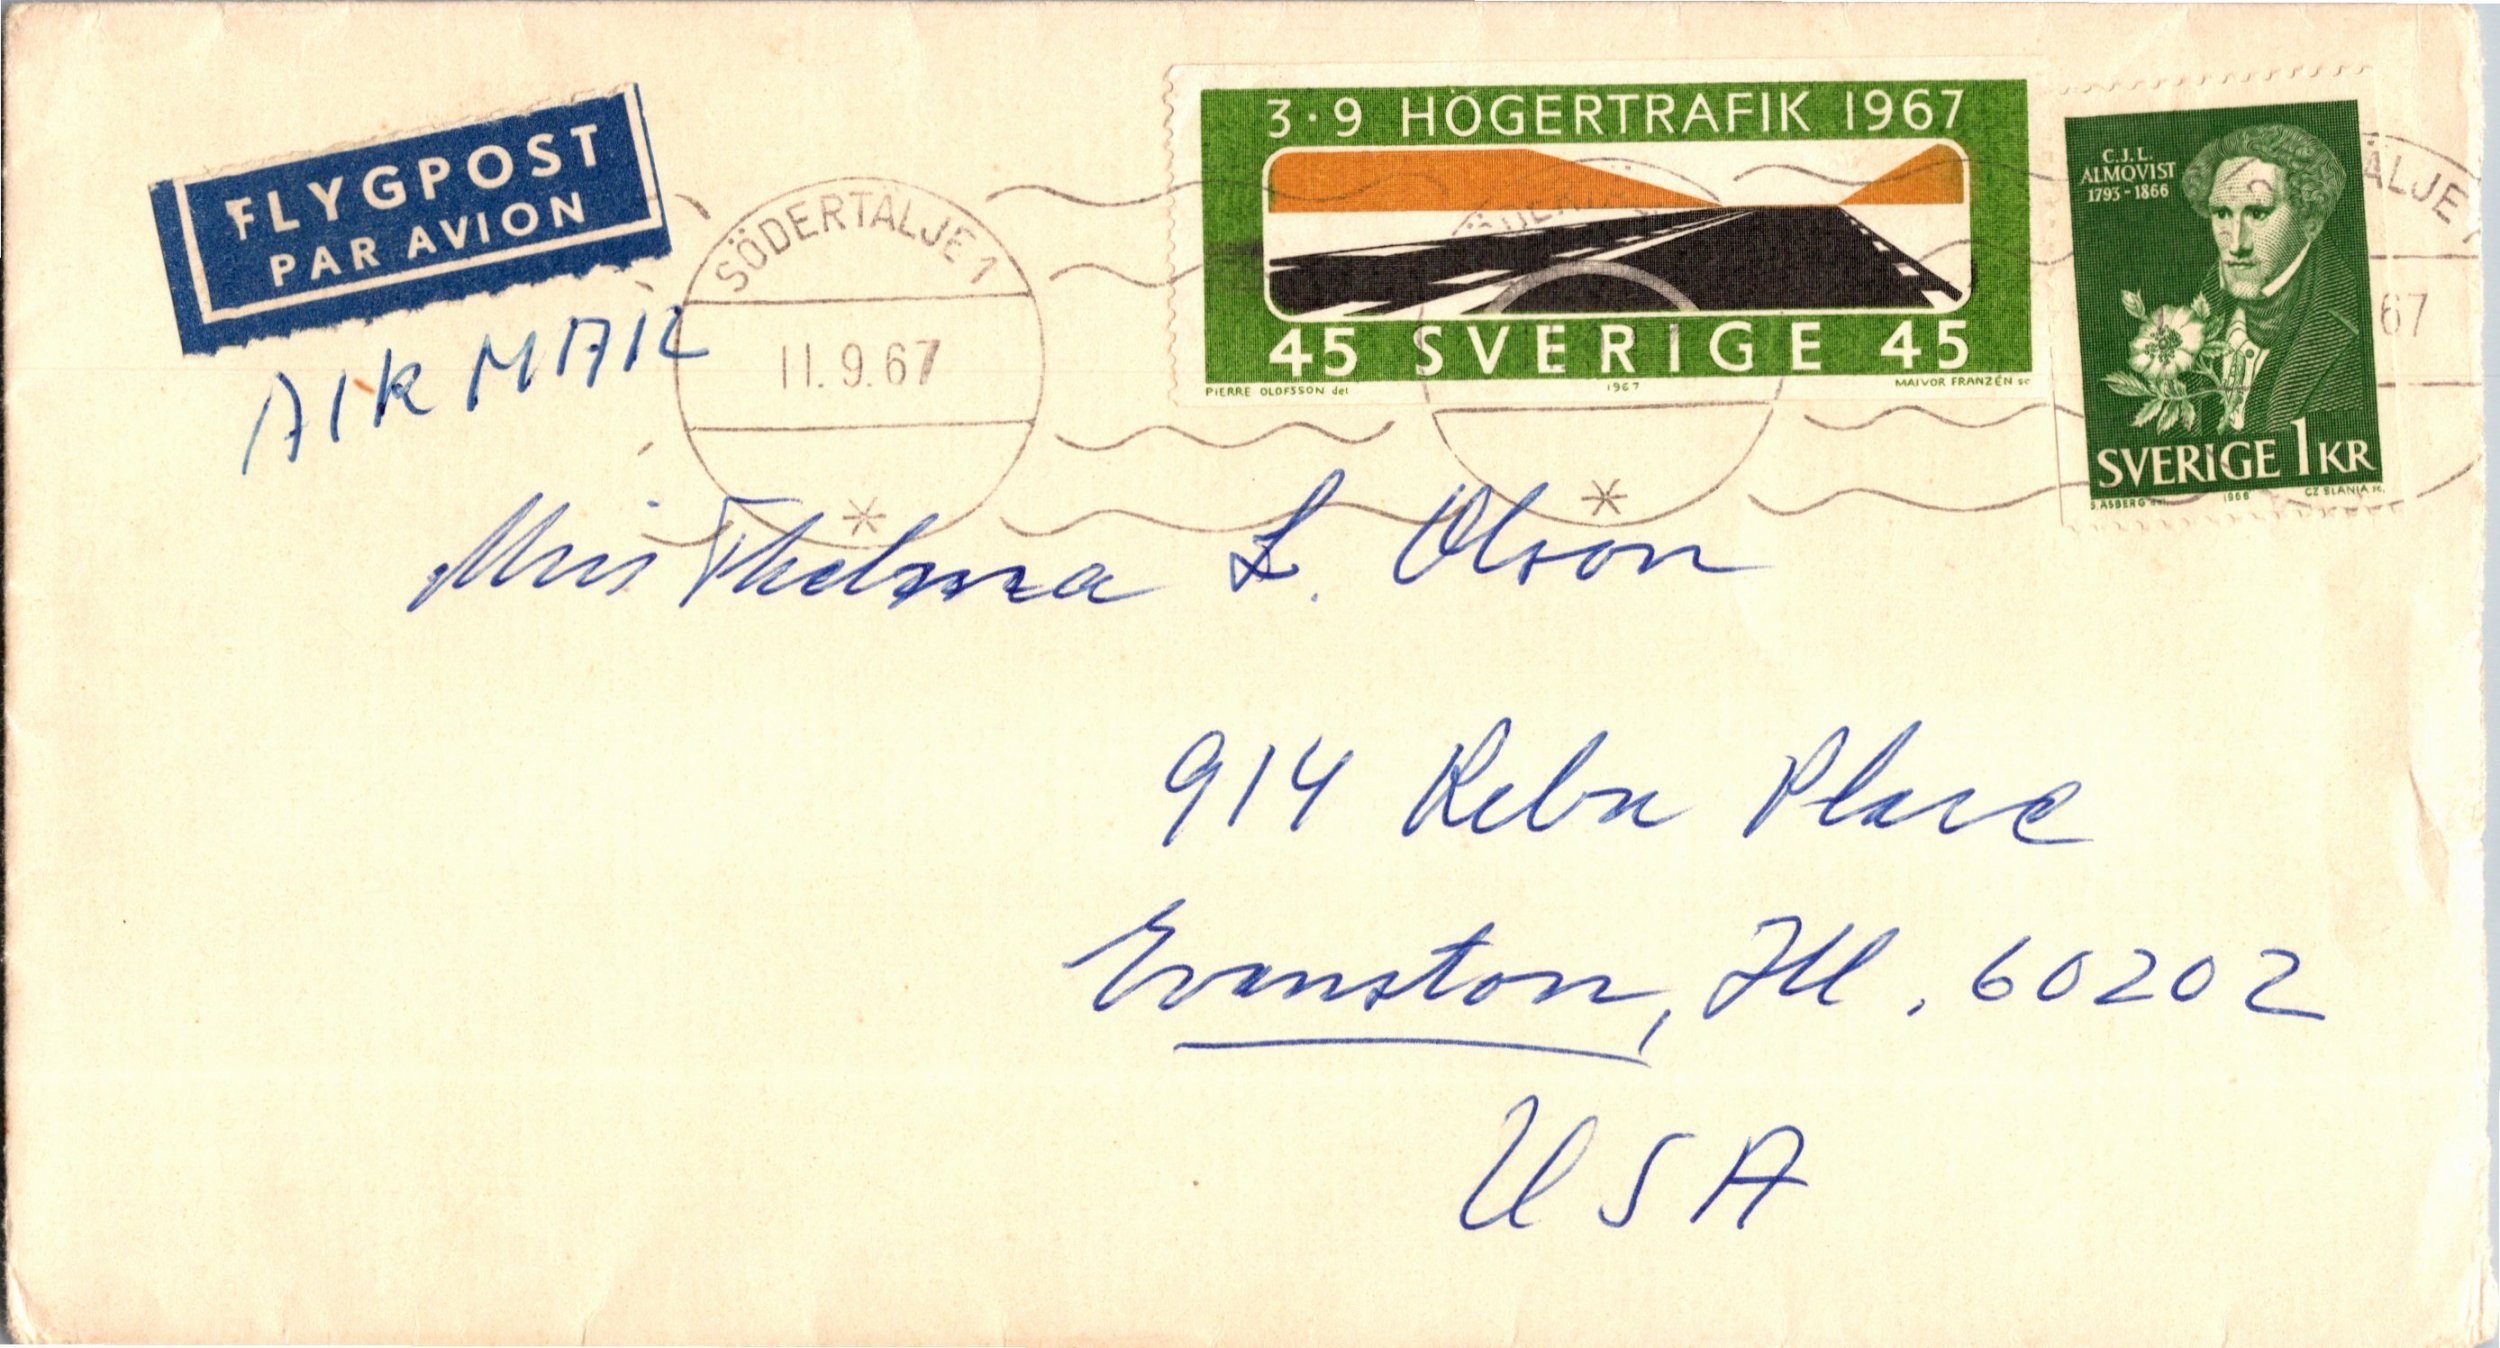 FLYGPOST
PAR AVION
AIR MAIL
SÖDERTÄLJE 1
11.9.67
3·9 HÖGERTRAFIK 1967
45 SVERIGE 45
PIERRE OLOFSSON del
1967
MAJVOR FRANZÉN sc
SÖDERTÄL
C.J.L.
ALMQVIST
1793-1866
SVERIGE 1 KR
S. ÅSBERG del.
1966
CZ SLANIA sc.
ÄLJE 1
67
Miss Thelma L. Olson
914 Reba Place
Evanston, Ill. 60202
USA